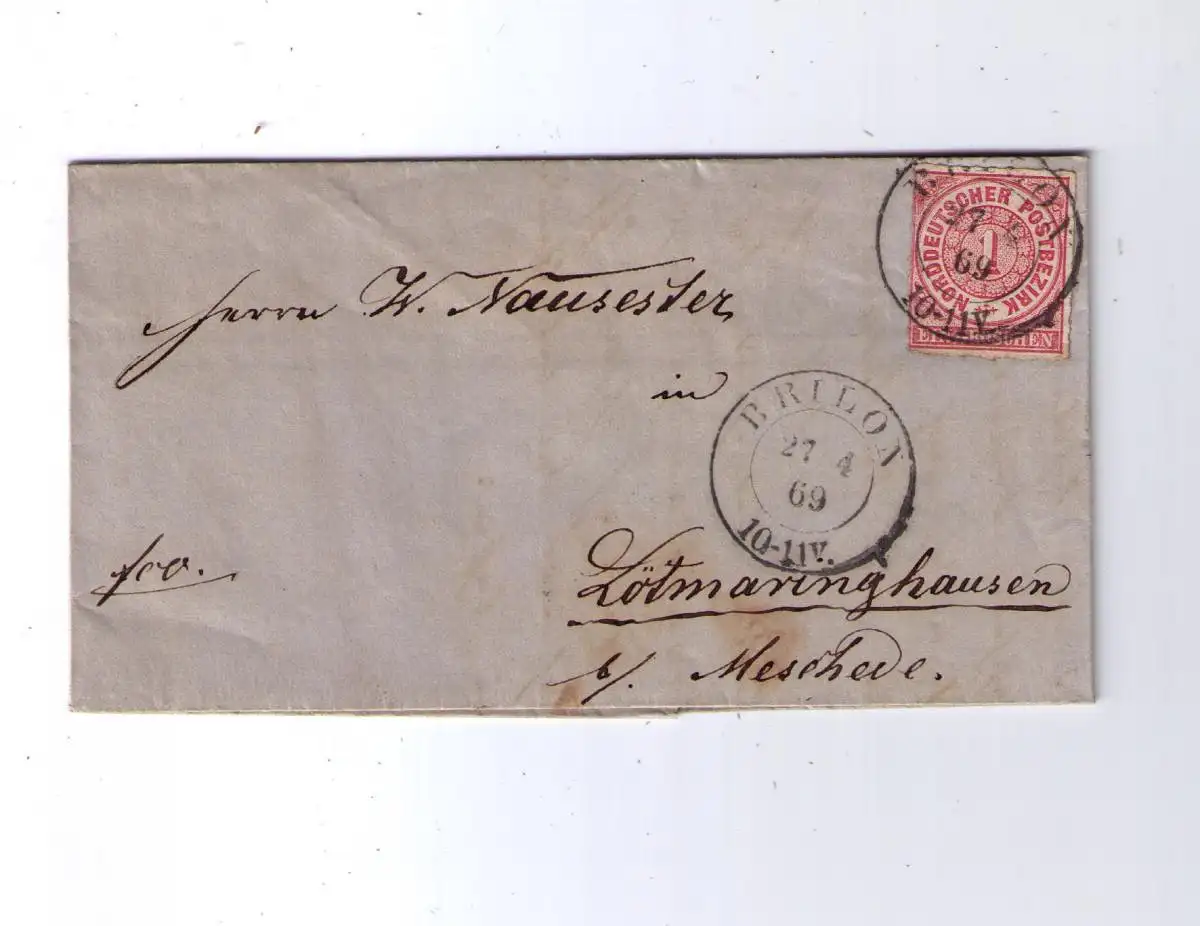 BRILON
27 4
69
10-11V.
NORDDEUTSCHER POSTBEZIRK
1
EIN GROSCHEN
Herrn W. Nausester
in
BRILON
27 4
69
10-11V.
fco.
Lötmaringhausen
b/. Meschede.